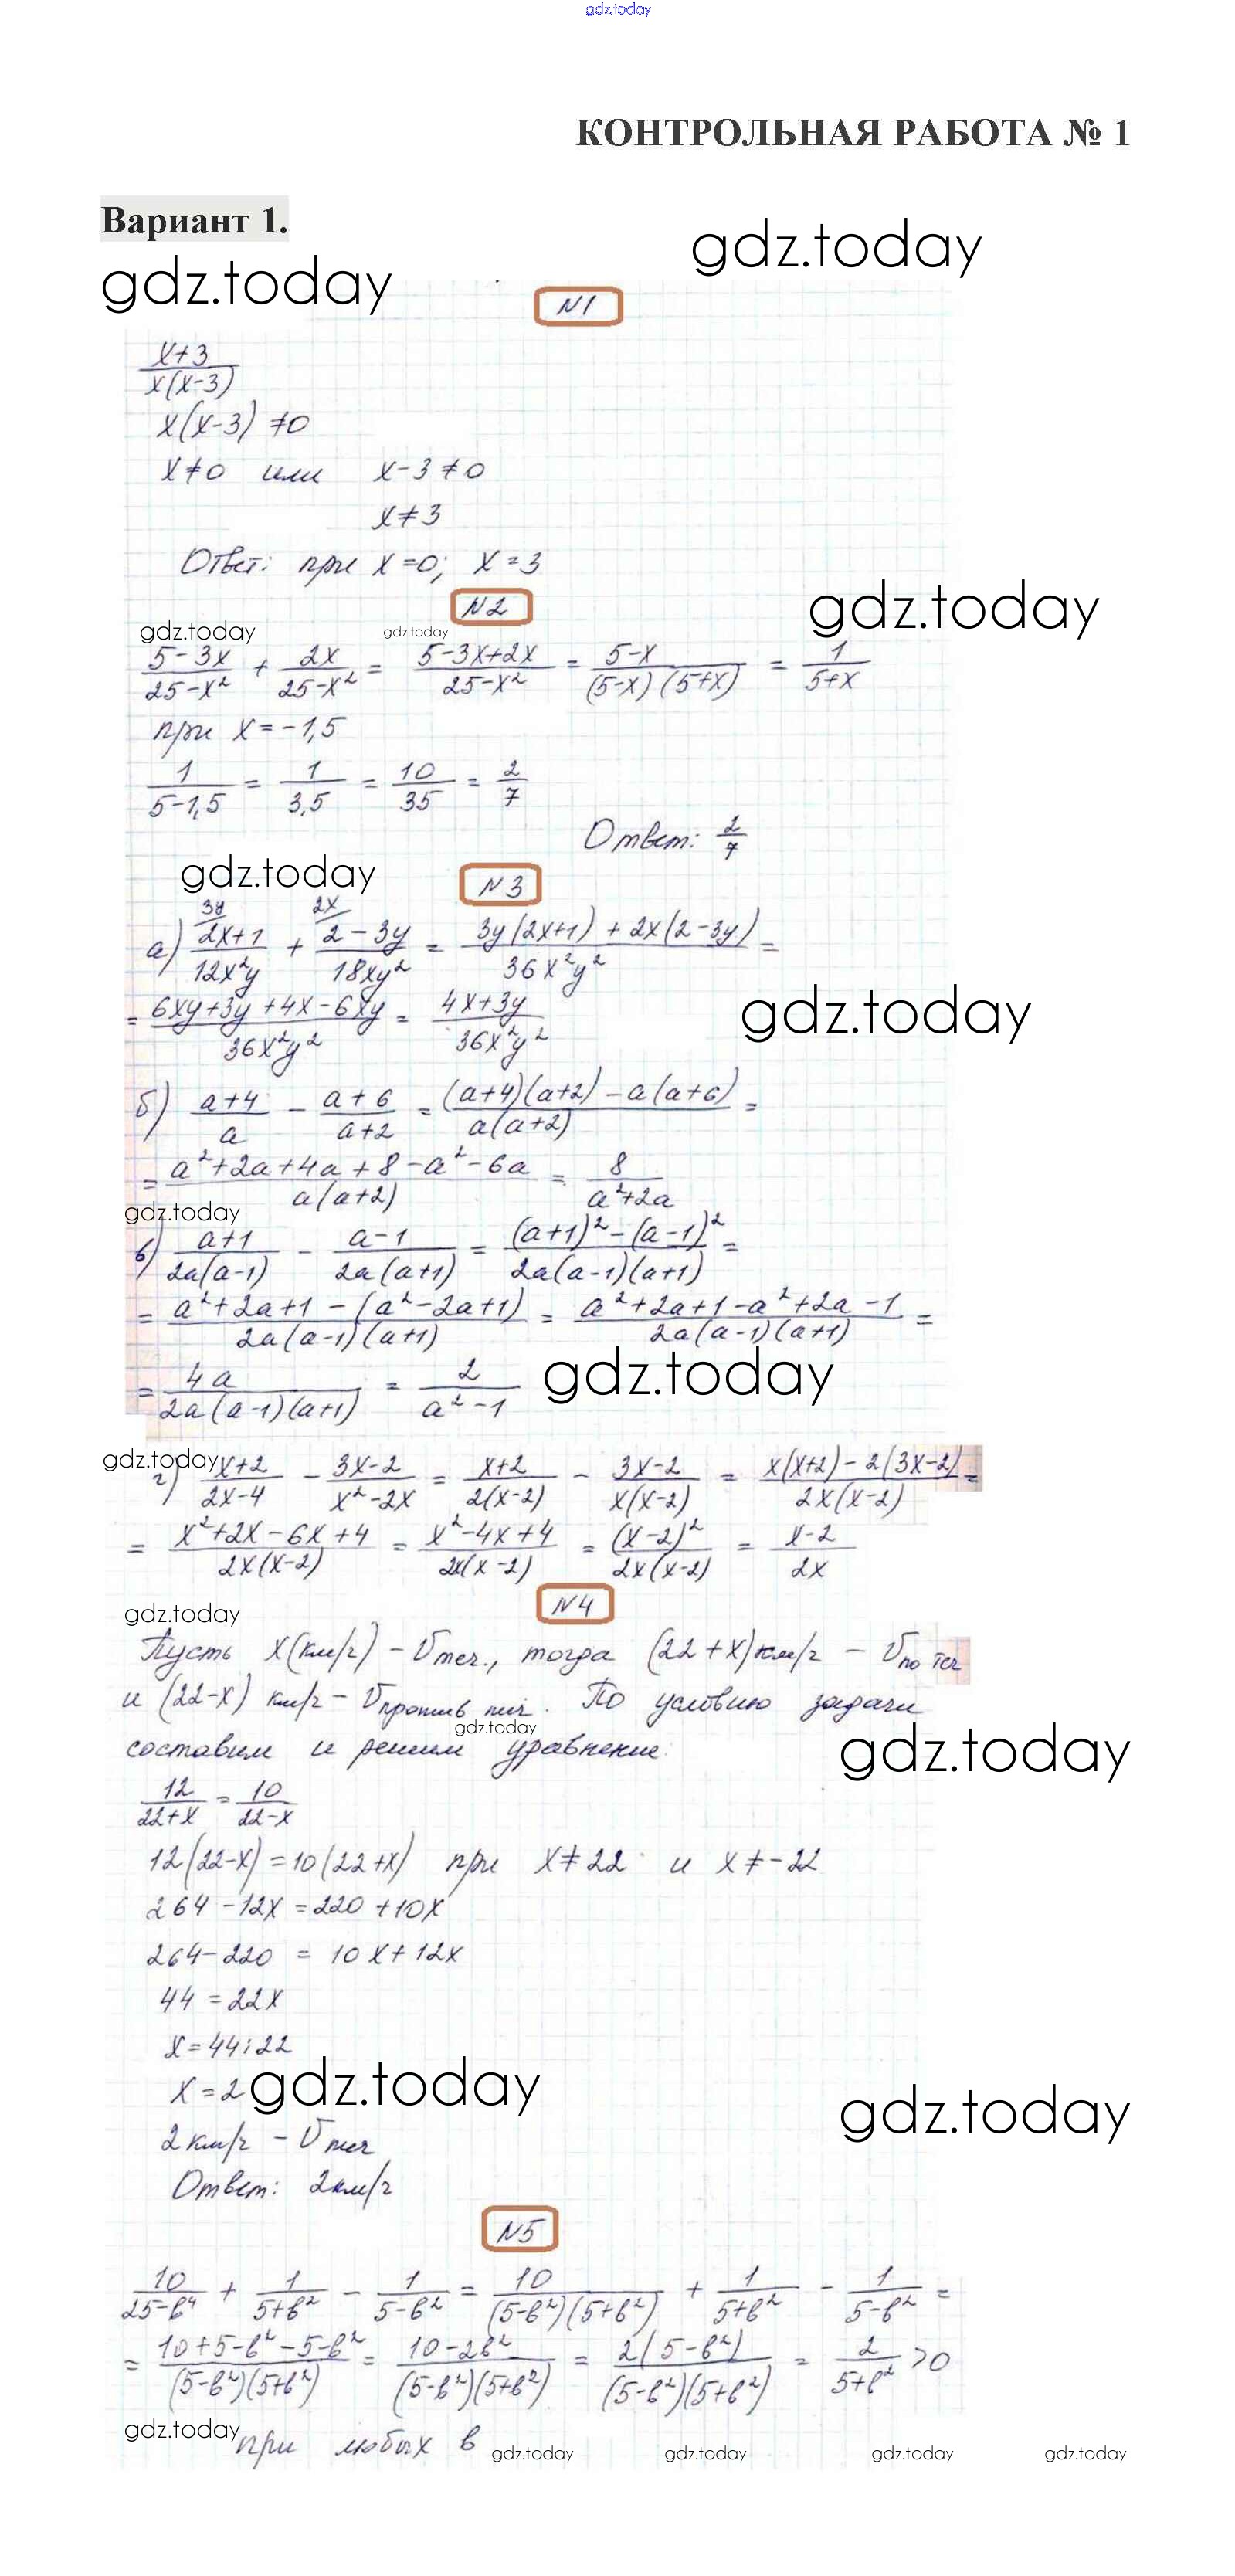 gdz.today
КОНТРОЛЬНАЯ РАБОТА № 1
Вариант 1.
gdz.today
gdz.today
N1
(x+3)/(x(x-3))
x(x-3) ≠0
x≠0 или x-3≠0
x≠3
Ответ: при x=0; x=3
N2
gdz.today
gdz.today gdz.today
(5-3x)/(25-x²) + 2x/(25-x²) = (5-3x+2x)/(25-x²) = (5-x)/((5-x)(5+x)) = 1/(5+x)
при x=-1,5
1/(5-1,5) = 1/3,5 = 10/35 = 2/7
Ответ: 2/7
gdz.today
N3
3y 2x
а) (2x+1)/(12x²y) + (2-3y)/(18xy²) = (3y(2x+1) + 2x(2-3y))/(36x²y²) =
= (6xy+3y+4x-6xy)/(36x²y²) = (4x+3y)/(36x²y²)
gdz.today
б) (a+4)/a - (a+6)/(a+2) = ((a+4)(a+2)-a(a+6))/(a(a+2)) =
= (a²+2a+4a+8-a²-6a)/(a(a+2)) = 8/(a²+2a)
gdz.today
в) (a+1)/(2a(a-1)) - (a-1)/(2a(a+1)) = ((a+1)²-(a-1)²)/(2a(a-1)(a+1)) =
= (a²+2a+1-(a²-2a+1))/(2a(a-1)(a+1)) = (a²+2a+1-a²+2a-1)/(2a(a-1)(a+1)) =
= 4a/(2a(a-1)(a+1)) = 2/(a²-1)
gdz.today
gdz.today
г) (x+2)/(2x-4) - (3x-2)/(x²-2x) = (x+2)/(2(x-2)) - (3x-2)/(x(x-2)) = (x(x+2)-2(3x-2))/(2x(x-2)) =
= (x²+2x-6x+4)/(2x(x-2)) = (x²-4x+4)/(2x(x-2)) = (x-2)²/(2x(x-2)) = (x-2)/(2x)
N4
gdz.today
Пусть x(км/ч) - v теч., тогда (22+x)км/ч - v по теч
и (22-x) км/ч - v против теч. По условию задачи
gdz.today
составим и решим уравнение:
gdz.today
12/(22+x) = 10/(22-x)
12(22-x)=10(22+x) при x≠22 и x≠-22
264-12x=220+10x
264-220 = 10x+12x
44=22x
x=44:22
x=2
gdz.today
gdz.today
2км/ч - v теч
Ответ: 2км/ч
N5
10/(25-b⁴) + 1/(5+b²) - 1/(5-b²) = 10/((5-b²)(5+b²)) + 1/(5+b²) - 1/(5-b²) =
= (10+5-b²-5-b²)/((5-b²)(5+b²)) = (10-2b²)/((5-b²)(5+b²)) = 2(5-b²)/((5-b²)(5+b²)) = 2/(5+b²) >0
gdz.today
при любых b
gdz.today gdz.today gdz.today gdz.today